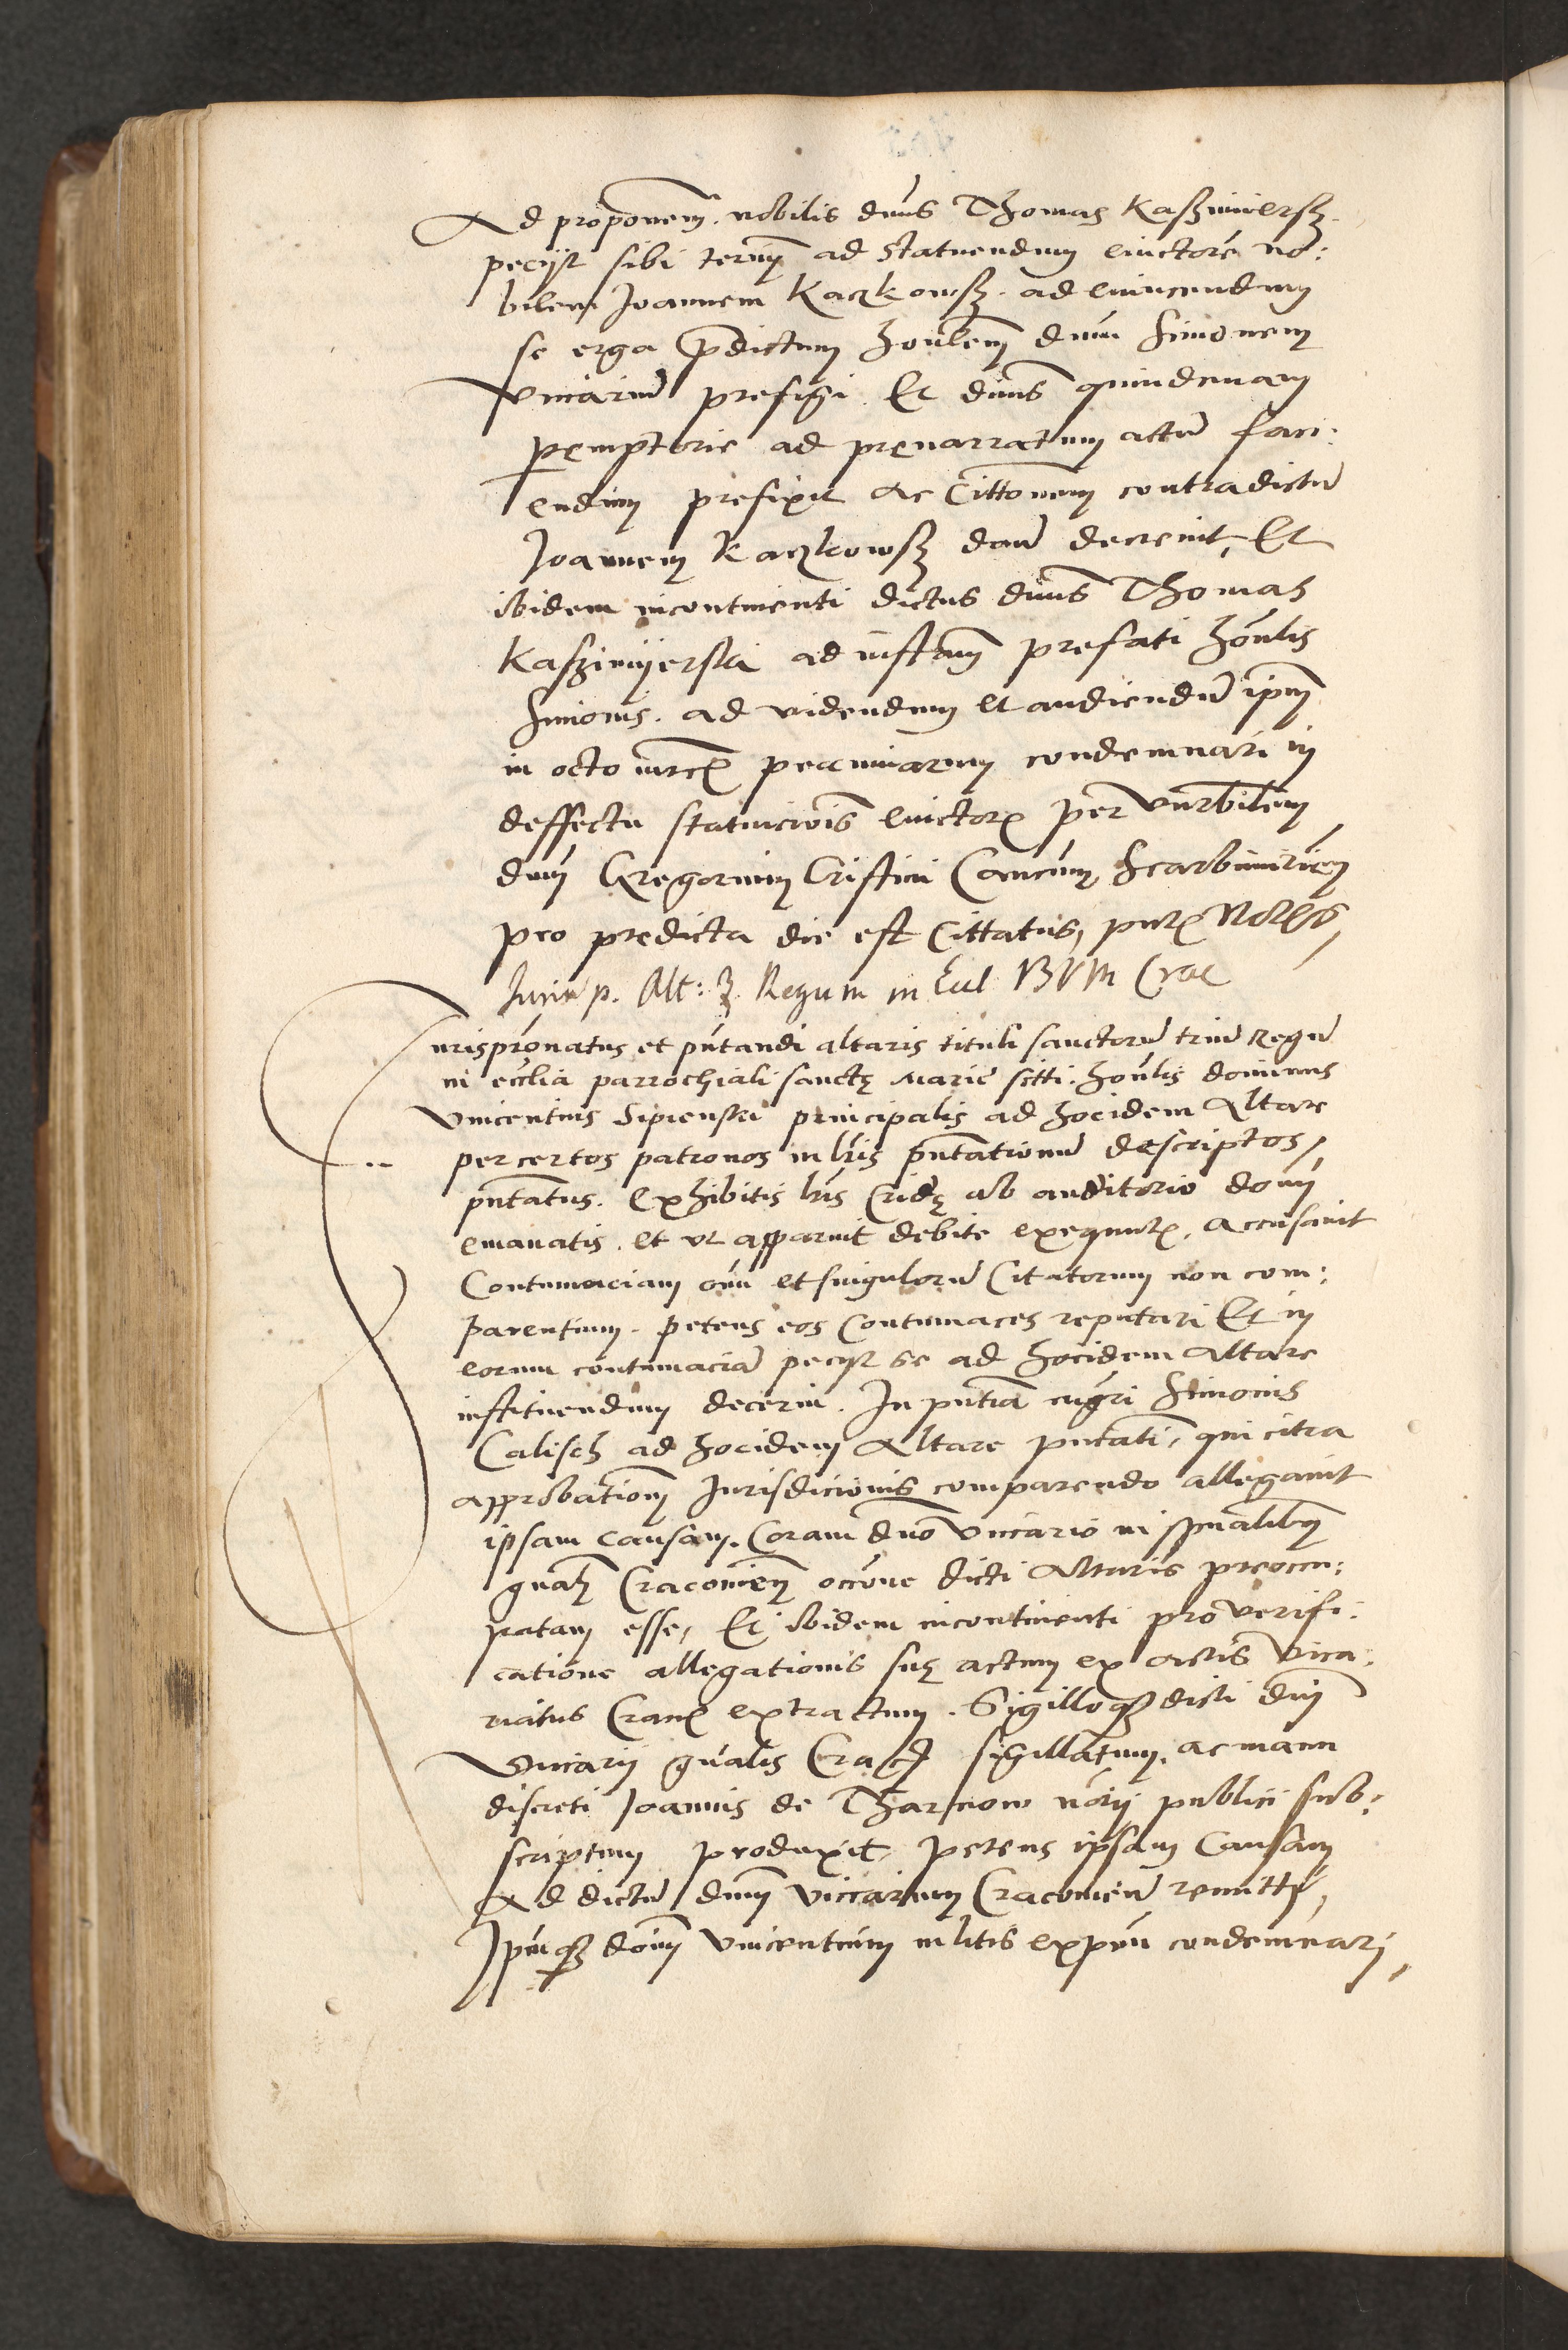 Ad proponem. nobilis dnus Thomas Kaszimiersz.
peciit sibi termin ad statuendum euictore no:
bilem Joannem Kaczkowsz. ad euincendum
se erga predictum honlem dnum Simonem
vicarium prefigi. Et dnus quindenam
peremptorie ad prenarratum actum faci:
endum prefixit ac Cittonem contra dictum
Joannem Kaczkowsz dam decreuit, Et
ibidem incontinenti dictus dnus Thomas
Kaszimijerski ad instam prefati honlis
Simonis. ad videndum et audiendum ipm
in octo mrcs pecuniarum condemnari in
deffectu statuicionis euictoris per venrbilem
dnum Gregorium Cristini Canicum Scarbimirien
pro predicta die est Cittatus, pntibus
Jurisp. Alt: 3. Regum in Eccl BVM Crac
Jurispronatus et pntandi altaris tituli sanctorum trium Regum
in ecclia parrochiali sanctę Marie sitti. honlis dominus
Vincentius Sipienski principalis ad hocidem Altare
per certos patronos in lris pntationum descriptos,
pntatus. exhibitis lris Cridę ab auditorio domi
emanatis. et vt apparuit debite exequutis, accusauit
Contumaciam oium et singulorum Citatorum non com:
parentium. petens eos Contumaces reputari Et in
eorum contumacia peciit se ad hocidem Altare
instituendum decerni. In pntia Simonis
Calisch ad hocidem Altare pntati, qui citra
approbationem Jurisdicionis comparendo allegauit
ipsam causam. Coram dno vicario in spualibus
gnali Cracouien occone dicti Altaris preoccu:
patam esse, Et ibidem incontinenti pro verifi:
catione allegationis suę actum ex actis Vica:
riatus Cracouien extractum. Sigilloqz dicti dni
Vicarij gnalis Crac sigillatum. ac manu
discreti Joannis de Tharnow norij publici sub:
scriptum produxit, petens ipsam Causam
Ad dictum dnum viccarium Cracouien remitti,
Ipmqz domi Vincentium in litis expen condemnari,